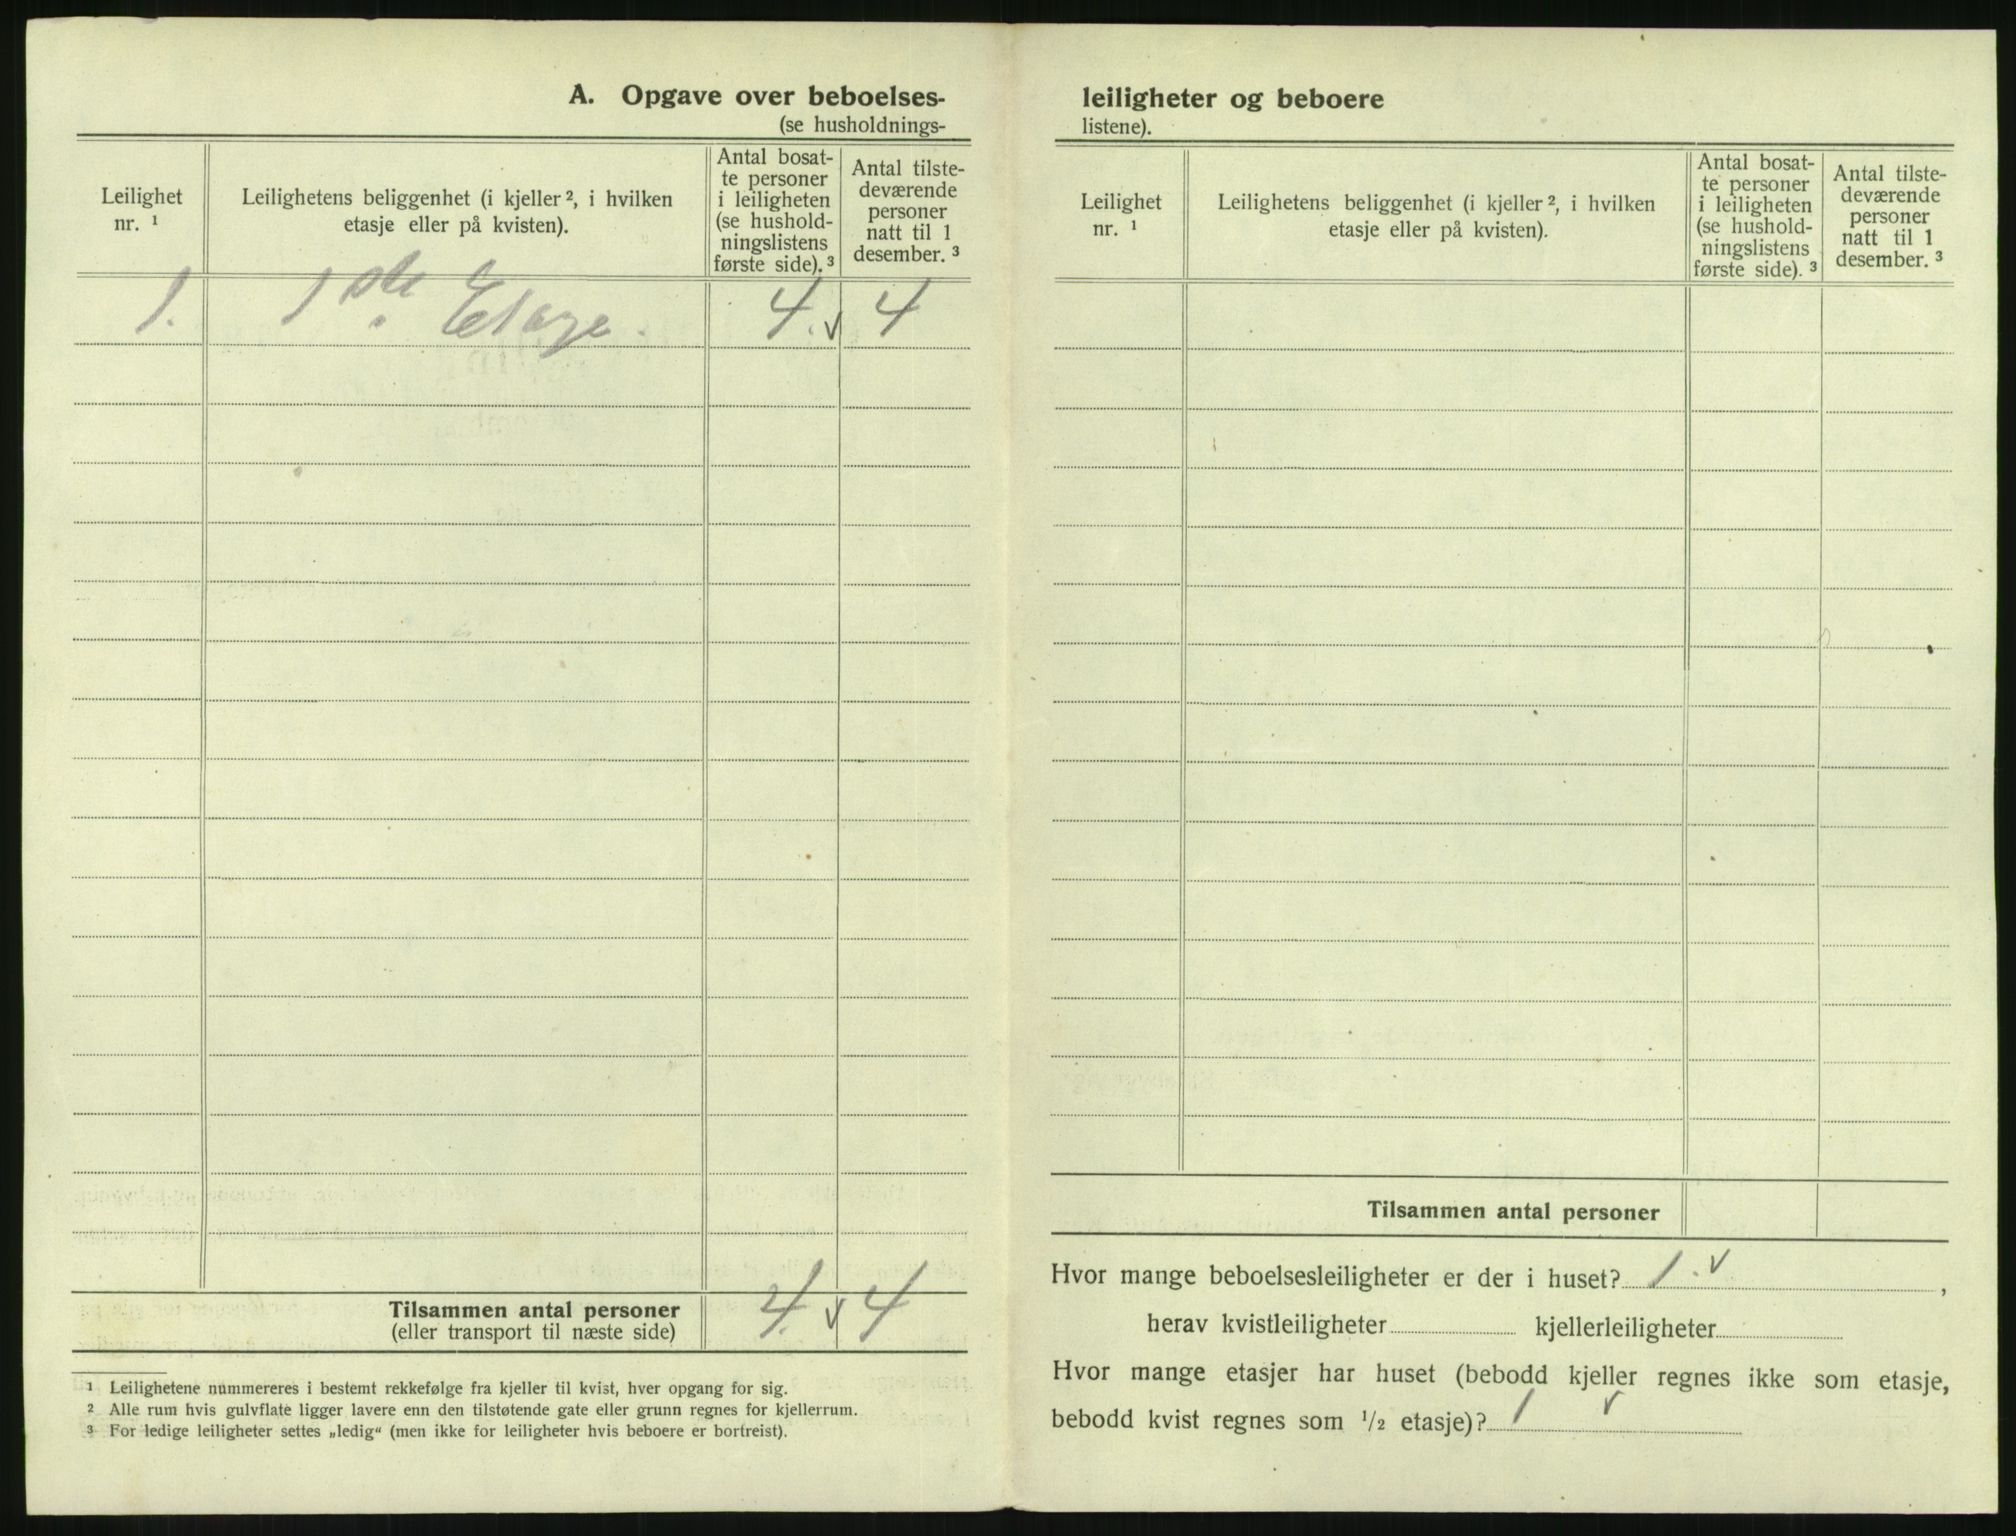 A. Opgave over beboelses-
(se husholdnings-
Leilighet
nr. ¹
Leilighetens beliggenhet (i kjeller ², i hvilken
etasje eller på kvisten).
Antal bosat-
te personer
i leiligheten
(se hushold-
ningslistens
første side). ³
Antal tilste-
deværende
personer
natt til 1
desember. ³
1. 1ste Etage. 4. v 4
Tilsammen antal personer 4. v 4
(eller transport til næste side)
¹ Leilighetene nummereres i bestemt rekkefølge fra kjeller til kvist, hver opgang for sig.
² Alle rum hvis gulvflate ligger lavere enn den tilstøtende gate eller grunn regnes for kjellerrum.
³ For ledige leiligheter settes „ledig“ (men ikke for leiligheter hvis beboere er bortreist).
leiligheter og beboere
listene).
Leilighet
nr. ¹
Leilighetens beliggenhet (i kjeller ², i hvilken
etasje eller på kvisten).
Antal bosat-
te personer
i leiligheten
(se hushold-
ningslistens
første side). ³
Antal tilste-
deværende
personer
natt til 1
desember. ³
Tilsammen antal personer
Hvor mange beboelsesleiligheter er der i huset? 1. v ,
herav kvistleiligheter kjellerleiligheter
Hvor mange etasjer har huset (bebodd kjeller regnes ikke som etasje,
bebodd kvist regnes som ¹/₂ etasje)? 1 v